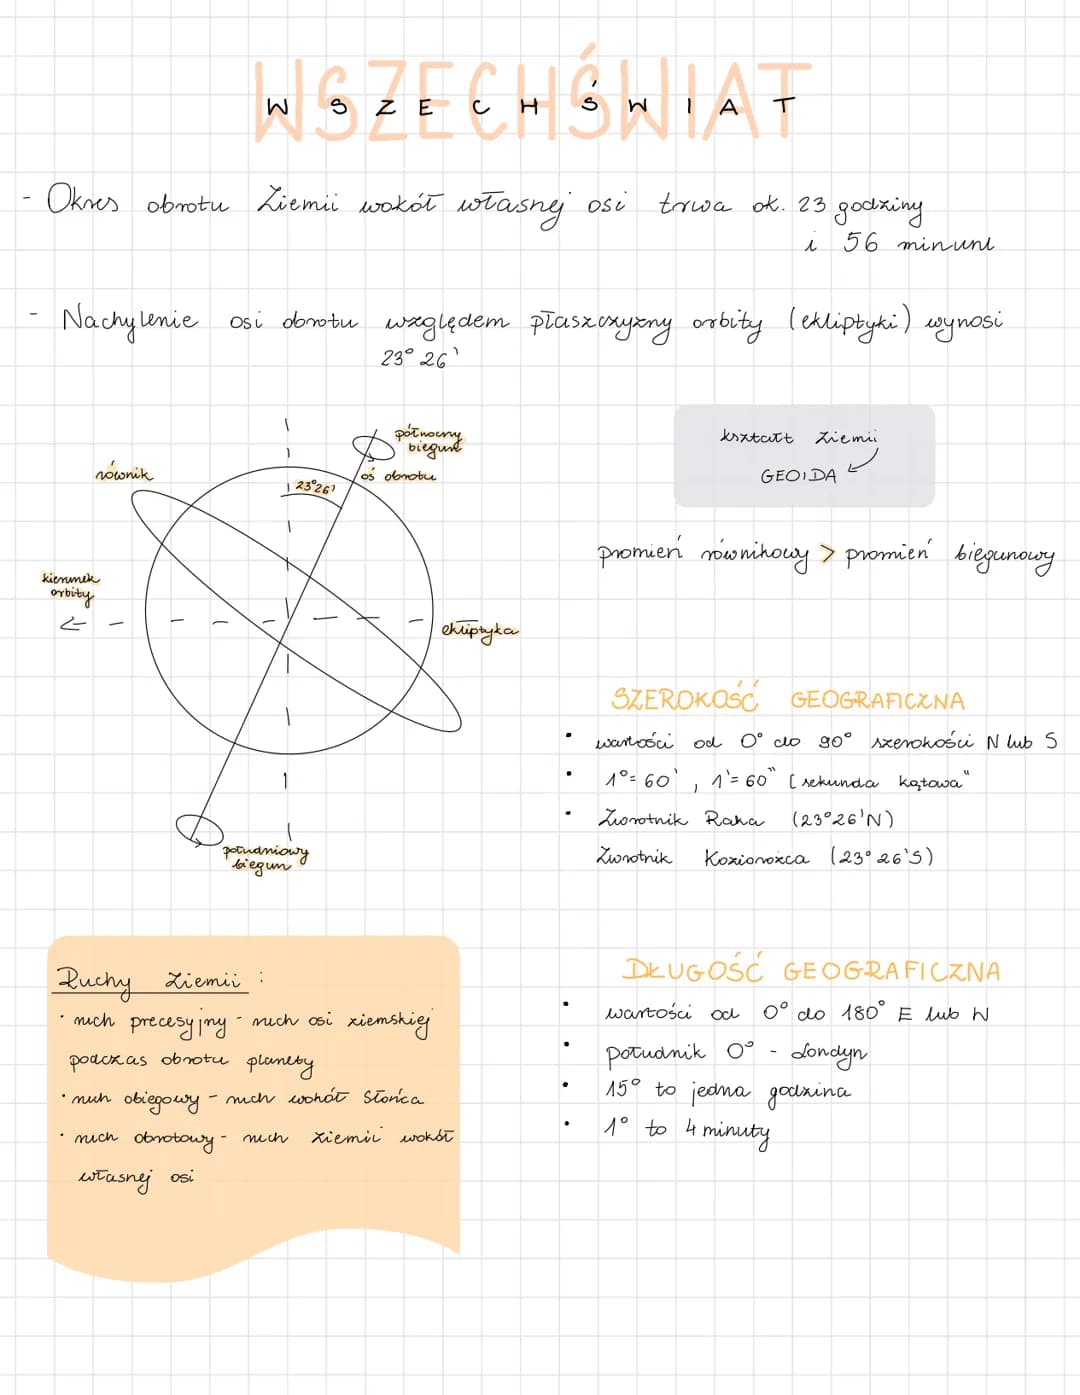 WSZECHŚWIAT
- Okres obrotu Ziemii wokół własnej osi trwa ok. 23 godziny
i 56 minunt
- Nachylenie osi obrotu względem płaszczyzny orbity (ekliptyki) wynosi
23° 26'
północny
biegun
oś obrotu
23°26'
równik
kierunek
orbity
ekliptyka
południowy
biegun
kształt Ziemii
GEOIDA
promień równikowy > promień biegunowy
SZEROKOŚĆ GEOGRAFICZNA
• wartości od 0° do 90° szerokości N lub S
• 1°= 60' , 1'= 60" [sekunda kątowa"
• Zwrotnik Raka (23°26'N)
Zwrotnik Koziorożca (23°26'S)
Ruchy Ziemii :
• ruch precesyjny - ruch osi ziemskiej
podczas obrotu planety
• ruch obiegowy - ruch wokół Słońca
• ruch obrotowy - ruch Ziemii wokół
własnej osi
DŁUGOŚĆ GEOGRAFICZNA
• wartości od 0° do 180° E lub W
• południk 0° - Londyn
• 15° to jedna godzina
• 1° to 4 minuty